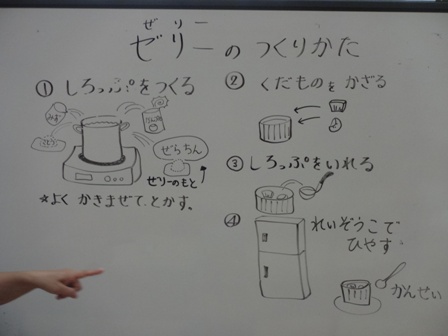 ぜりー
ゼリーのつくりかた
① しろっぷをつくる
みず
さとう
ぜらちん
ゼリーのもと
★よくかきまぜて、とかす。
② くだものをかざる
③ しろっぷをいれる
④ れいぞうこで
ひやす
かんせい